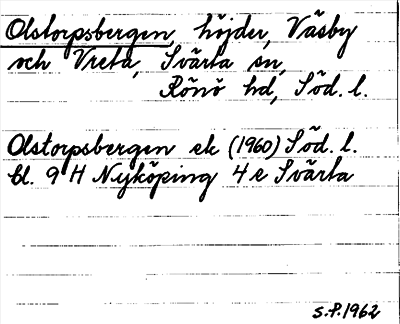 Olstorpsbergen, höjder, Väsby
och Vreta, Svärta sn,
Rönö hd, Söd. l.
Olstorpsbergen ek (1960) Söd. l.
bl. 9 H Nyköping 4 e Svärta
S.P. 1962